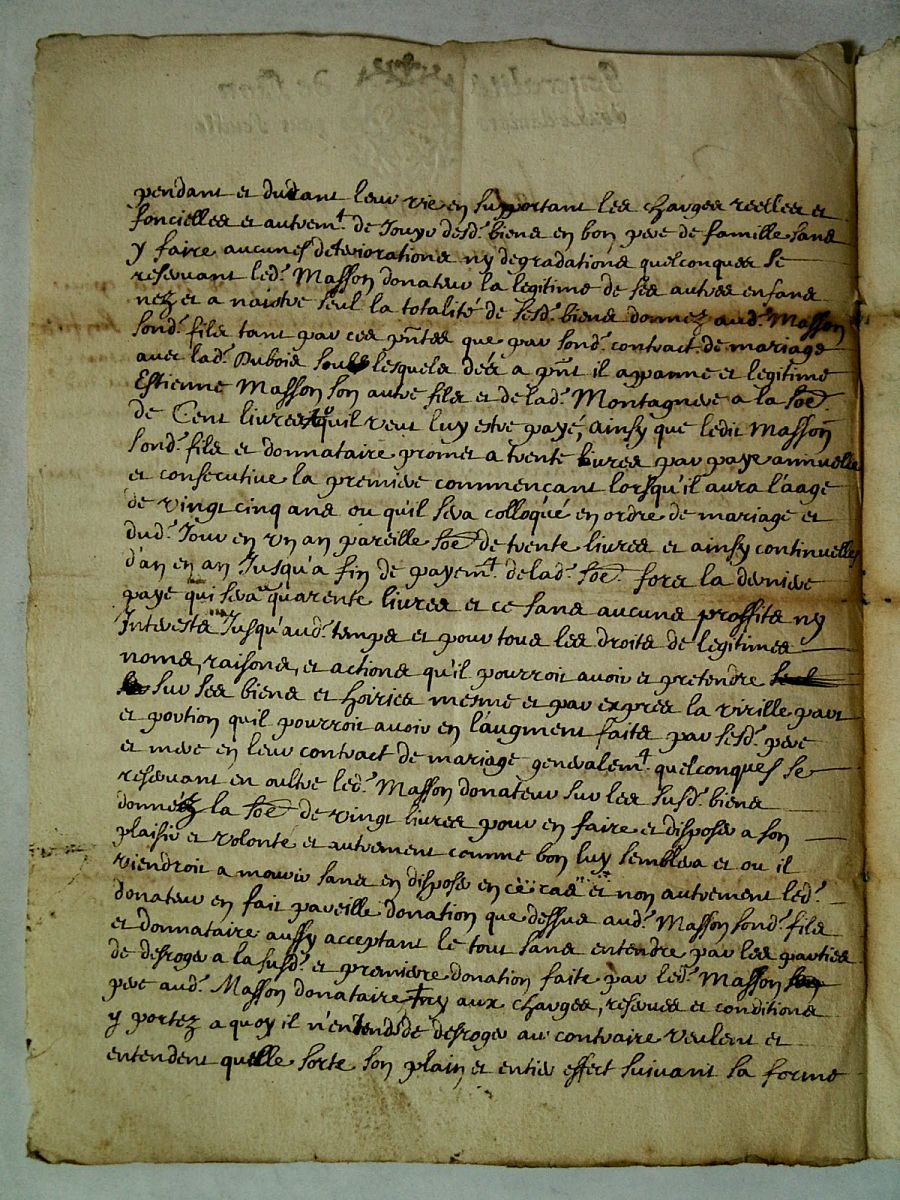 pendant et durant leur vie en suportant les charges reelles et
foncielles et autrem.t de Jouyr desd. biens en bon pere de famille sans
y faire aucunes deteriorations ny degradations quelconques se
reservant led. Masson donateur la legitime de ses autres enfans
nez et a naistre seul la totalité de sesd. biens donnez aud. Masson
sond. fils tant par ces pñtes que par sond. contract de mariage
avec lad. Dubois soubs lesquels dès a pñt il apanne et legitime
Estienne Masson son autre fils et de lad. Montagnere a la soe.
de Cent livres qu'il veut luy estre payé, ainsy que ledit Masson
sond. fils et donnataire promet a trente livres par paye annuelle
et consecutive la premiere commencant lorsqu'il aura l'aage
de vingt cinq ans ou qu'il sera colloqué en ordre de mariage et
dud. Jour en un an pareille soe. de trente livres et ainsy continuelle
d'an en an Jusqu'a fin de payem.t de lad. soe. fors la derniere
paye qui sera quarente livres et ce sans aucuns proffits ny
Interests Jusqu'aud. temps et pour tous les droits de legitimes
noms, raisons, et actions qu'il pourroit avoir et pretendre
sur ses biens et hoiries mesme et par expres la virille part
et portion qu'il pourroit avoir en l'augment faits par sesd. pere
et mere en leur contract de mariage generalem.t quelconques se
reservant en oultre led. Masson donateur sur les susd. biens
donnéz la soe. de vingt livres pour en faire et disposer a son
plaisir et volonté et autrement comme bon luy semblera et ou il
viendroit a mourir sans en disposer en ce cas et non autrement led.
donateur en fait pareille donation que dessus aud. Masson sond. fils
et donnataire aussy acceptant le tout sans entendre par les parties
de desroger a la susd. et premiere donation faite par led. Masson
pere aud. Masson donataire ny aux charges, reserves et conditions
y portez a quoy il n'entends de desroger au contraire veulent et
entendent quelle sorte son plain et entier effect suivant sa forme